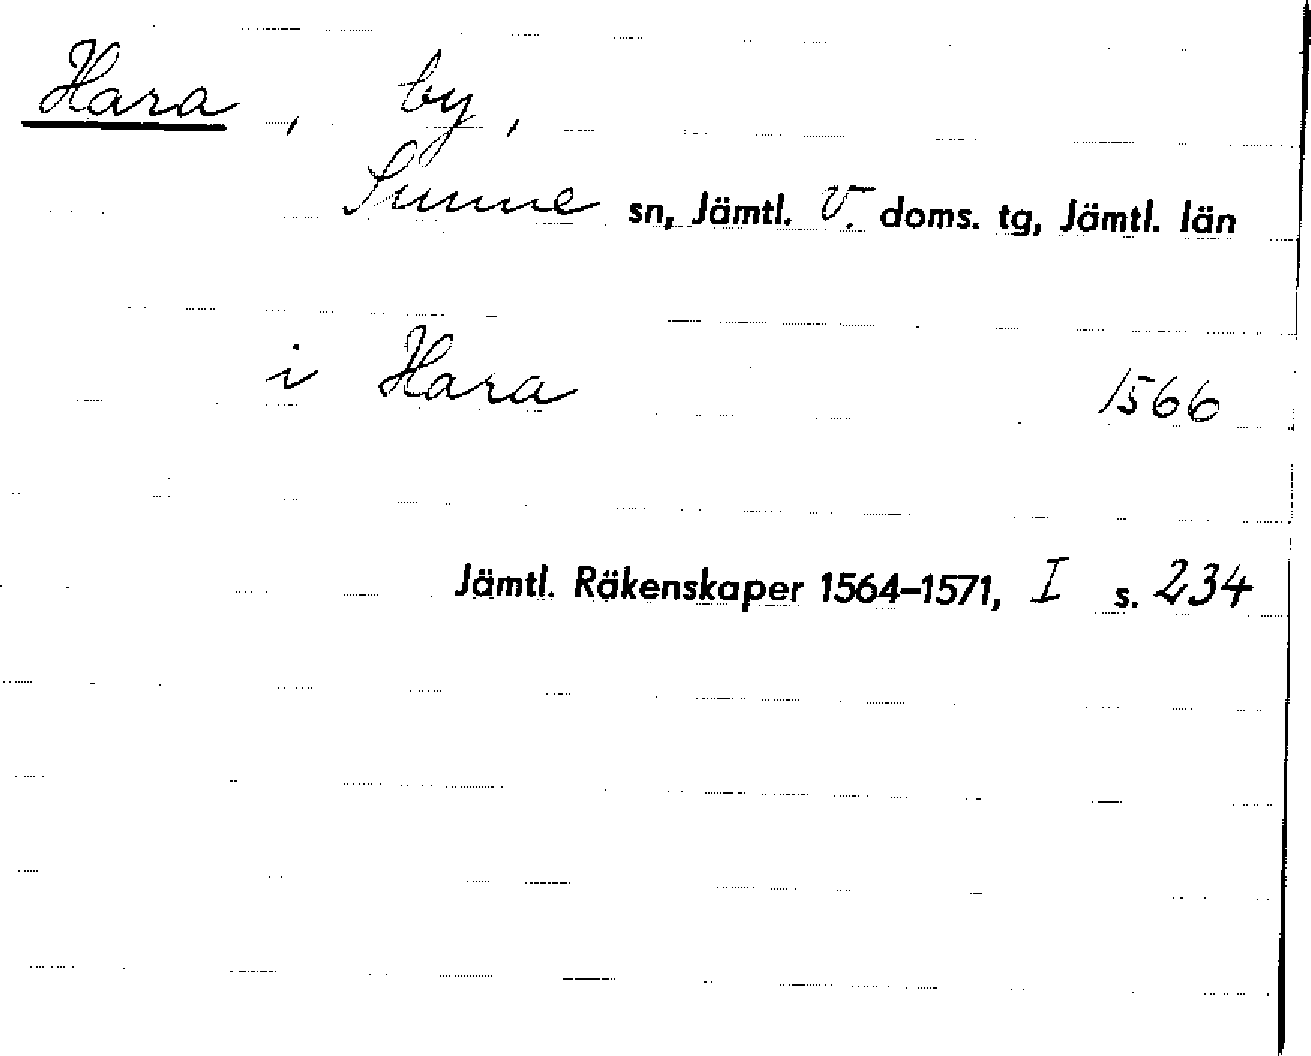 Hara, by,
Sunne sn, Jämtl. V. doms. tg, Jämtl. län
i Hara 1566
Jämtl. Räkenskaper 1564–1571, I s. 234